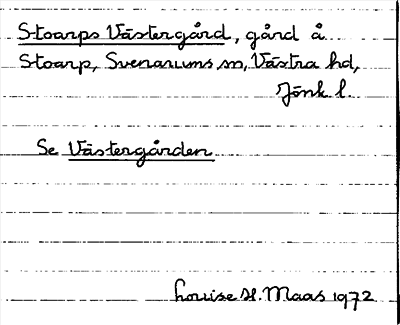 Stoarps Västergård, gård å
Stoarp, Svenarums sn, Västra hd,
Jönk l.
Se Västergården
Louise H. Maas 1972